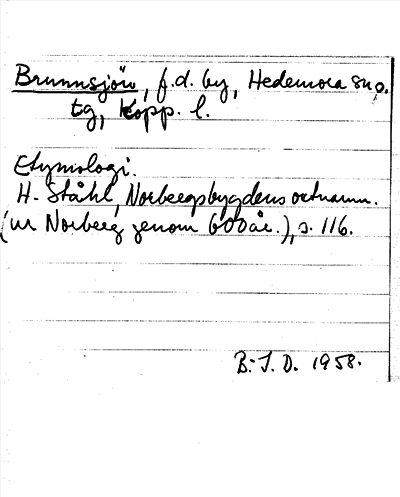 Brunnsjön, f.d. by, Hedemora sn o.
tg, Kopp. l.
Etymologi.
H. Ståhl, Norbergsbygdens ortnamn.
(ur Norberg genom 600 år.), s. 116.
B. I. D. 1958.